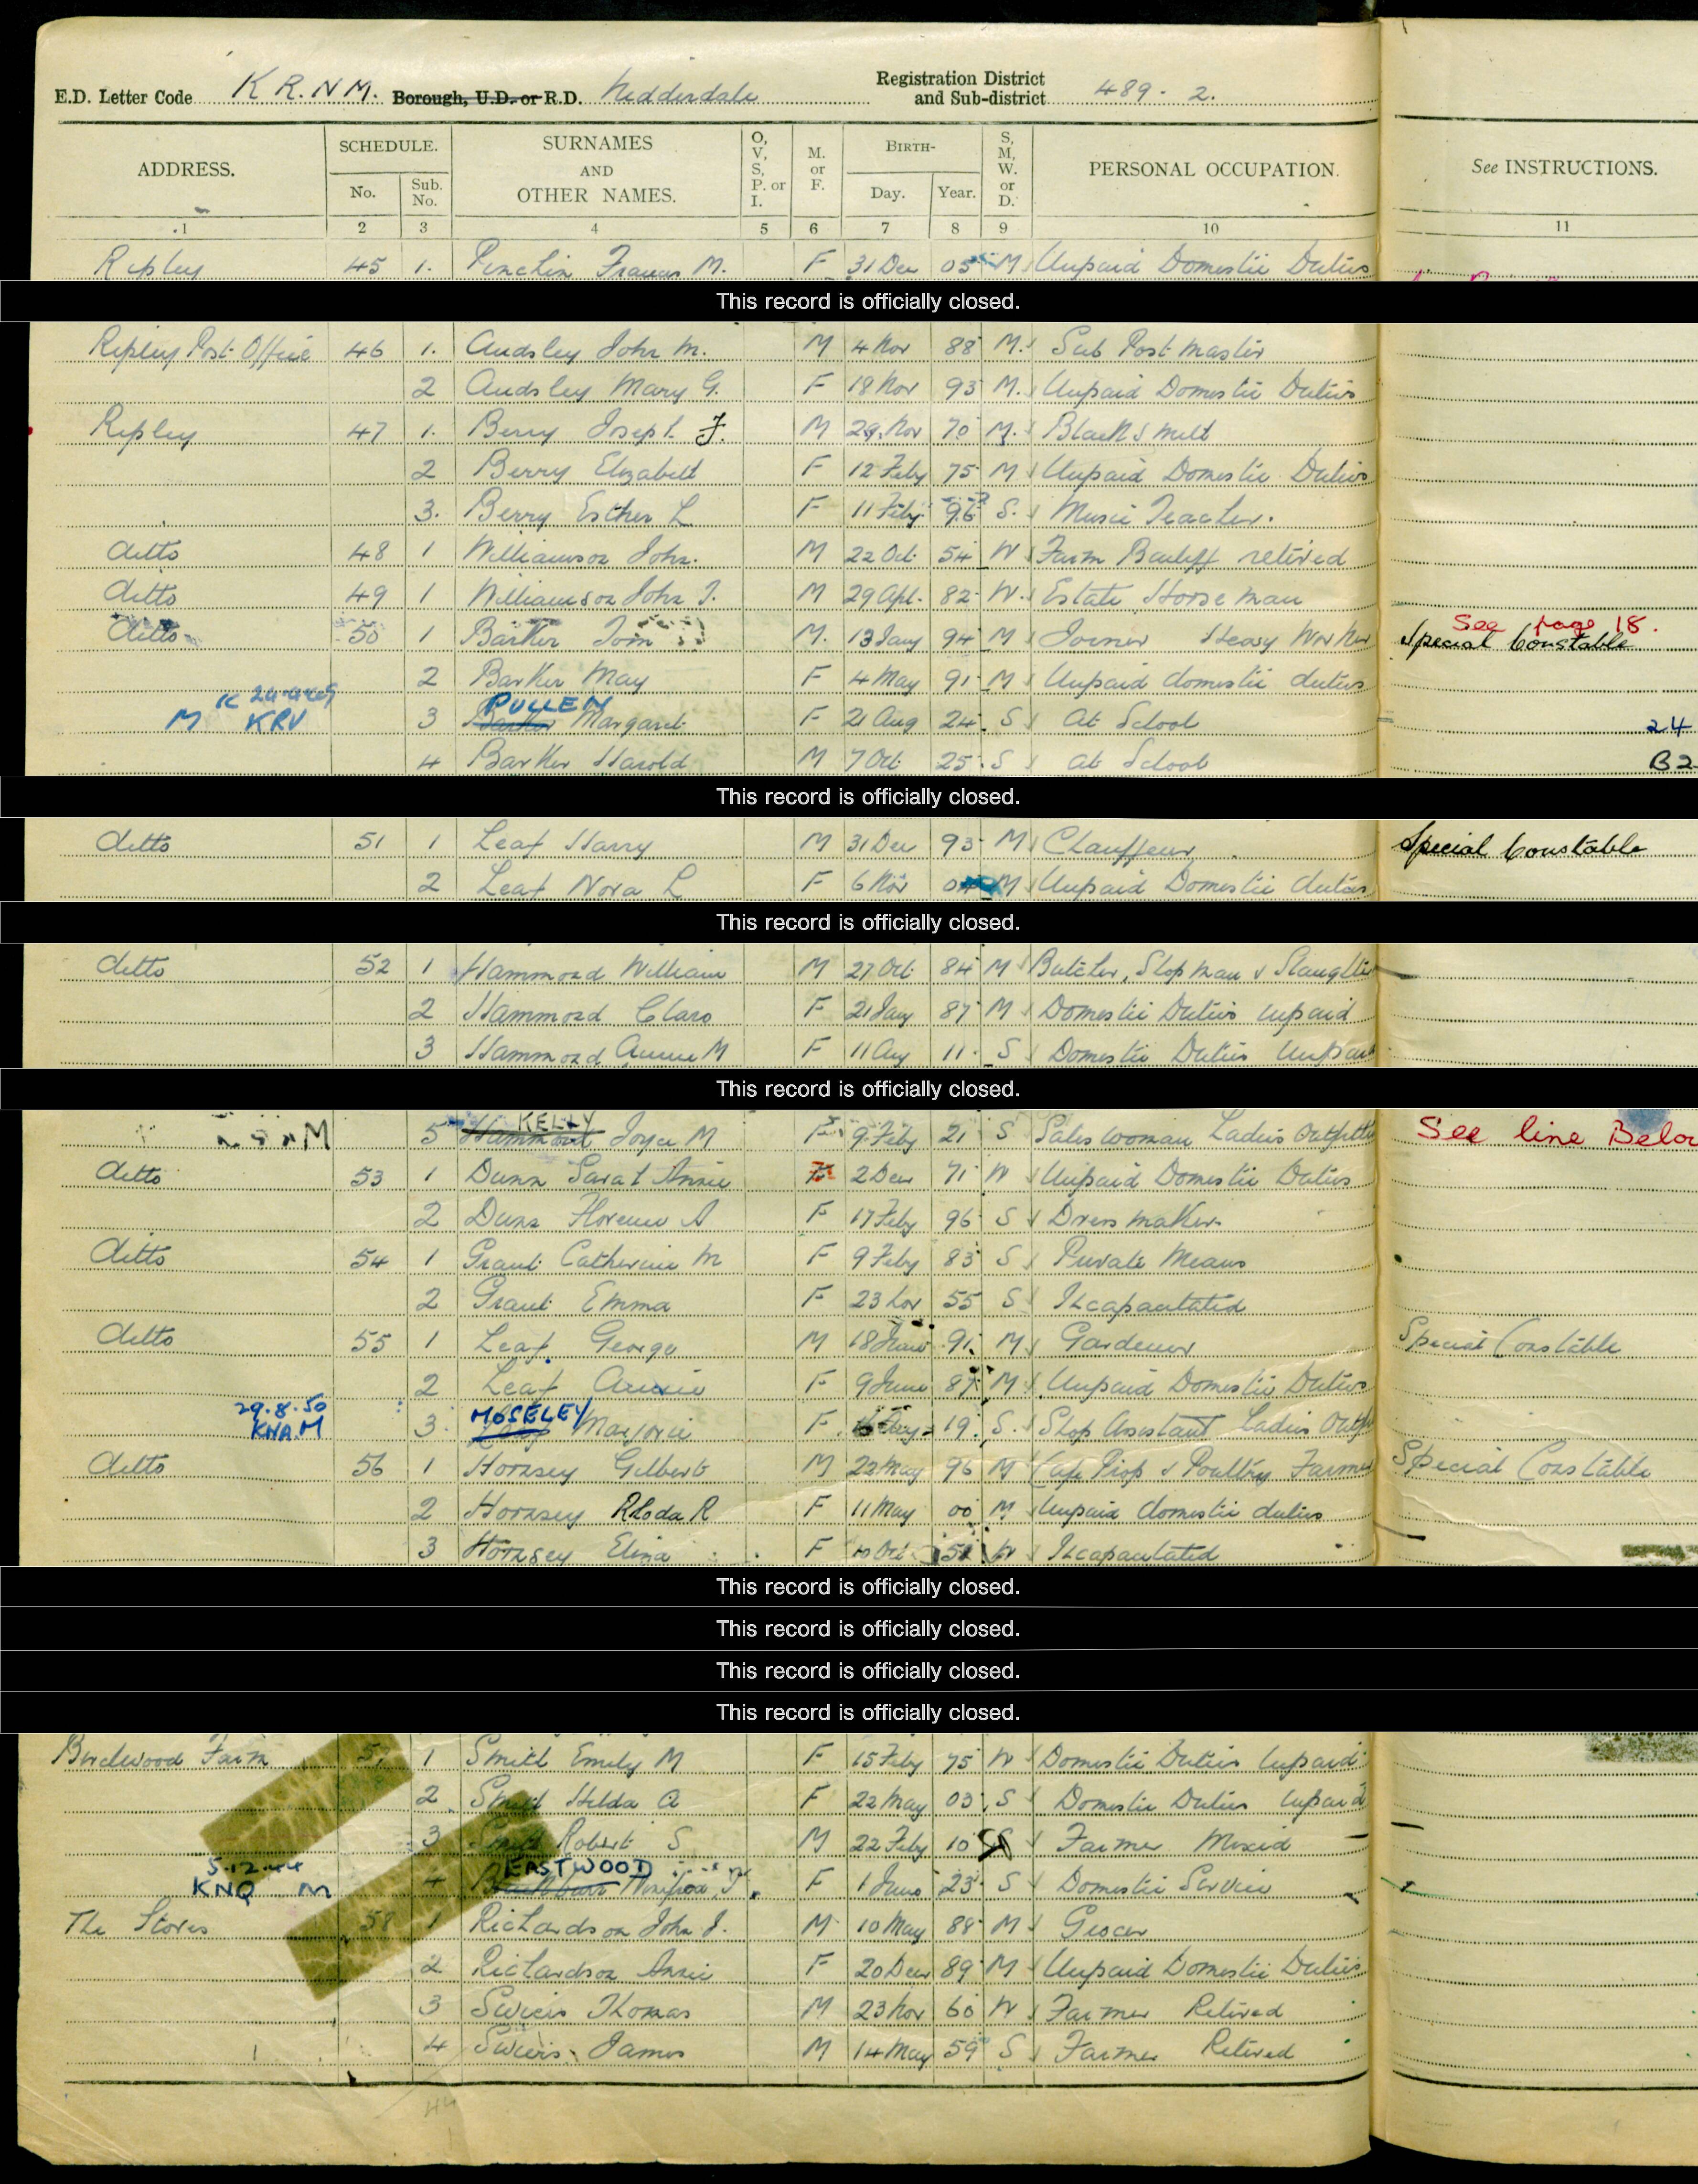 E.D. Letter Code K R. N M. Borough, U.D. or R.D. Nidderdale Registration District and Sub-district 489 - 2.
ADDRESS. SCHEDULE. No. Sub. No. SURNAMES AND OTHER NAMES. O, V, S, P. or I. M. or F. BIRTH- Day. Year. S, M, W. or D. PERSONAL OCCUPATION. See INSTRUCTIONS.
1 2 3 4 5 6 7 8 9 10 11
Ripley 45 1. Frances M. F 31 Dec 05 M Unpaid Domestic Duties
This record is officially closed.
Ripley Post Office 46 1. Audsley John M. M 4 Nov 88 M. Sub Post Master
2 Audsley Mary G. F 18 Nov 93 M. Unpaid Domestic Duties
Ripley 47 1. Berry Joseph F. M 29 Nov 70 M. Blacksmith
2 Berry Elizabeth F 12 Feby 75 M Unpaid Domestic Duties
3. Berry Esther L F 11 Feby 96 S. Music Teacher.
ditto 48 1 Williamson John. M 22 Oct 54 W Farm Bailiff retired
ditto 49 1 Williamson John T. M 29 Apl. 82 W. Estate Horseman
See page 18.
ditto 50 1 Barker Tom M. 13 Jany 94 M Joiner Heavy Worker Special Constable
2 Barker May F 4 May 91 M Unpaid domestic duties
PULLEN
M KRV 3 Barker Margaret F 21 Aug 24 S At School 24
4 Barker Harold M 7 Oct 25 S at School B2
This record is officially closed.
ditto 51 1 Leaf Harry M 31 Dec 93 M Chauffeur Special Constable
2 Leaf Nora L F 6 Nov 04 M Unpaid Domestic duties
This record is officially closed.
ditto 52 1 Hammond William M 27 Oct 84 M Butcher, Shopman & Slaughter
2 Hammond Clara F 21 Jany 87 M Domestic Duties unpaid
3 Hammond Annie M F 11 Aug 11 S Domestic Duties Unpaid
This record is officially closed.
KELLY
M 5 Hammond Joyce M F 9 Feby 21 S Sales woman Ladies Outfitters See line Below
ditto 53 1 Dunn Sarah Annie F 2 Dec 71 W Unpaid Domestic Duties
2 Dunn Florence A F 17 Feby 96 S Dressmaker
ditto 54 1 Grant Catherine M F 9 Feby 83 S Private Means
2 Grant Emma F 23 Nov 55 S Incapacitated
ditto 55 1 Leaf George M 18 June 91 M Gardener Special Constable
2 Leaf Annie F 9 June 87 M Unpaid Domestic Duties
29.8.50 MOSELEY
KNA.M 3. Leaf Marjorie F 19. S. Shop Assistant Ladies Outf
ditto 56 1 Hornsey Gilbert M 22 May 96 M Cafe Prop & Poultry Farmer Special Constable
2 Hornsey Rhoda R F 11 May 00 M Unpaid domestic duties
3 Hornsey Eliza F 10 Oct 51 W Incapacitated
This record is officially closed.
This record is officially closed.
This record is officially closed.
This record is officially closed.
Birchwood Farm 57 1 Smith Emily M F 15 Feby 75 W Domestic Duties unpaid
2 Smith Hilda A F 22 May 03 S Domestic Duties unpaid
3 Smith Robert S M 22 Feby 10 S Farmer Mixed
5.12.44 EASTWOOD
KNQ M 4 Winifred F 1 June 23 S Domestic Service
The Stores 58 1 Richardson John J. M 10 May 88 M Grocer
2 Richardson Annie F 20 Dec 89 M Unpaid Domestic Duties
3 Swiers Thomas M 23 Nov 60 W Farmer Retired
4 Swiers James M 14 May 59 S Farmer Retired